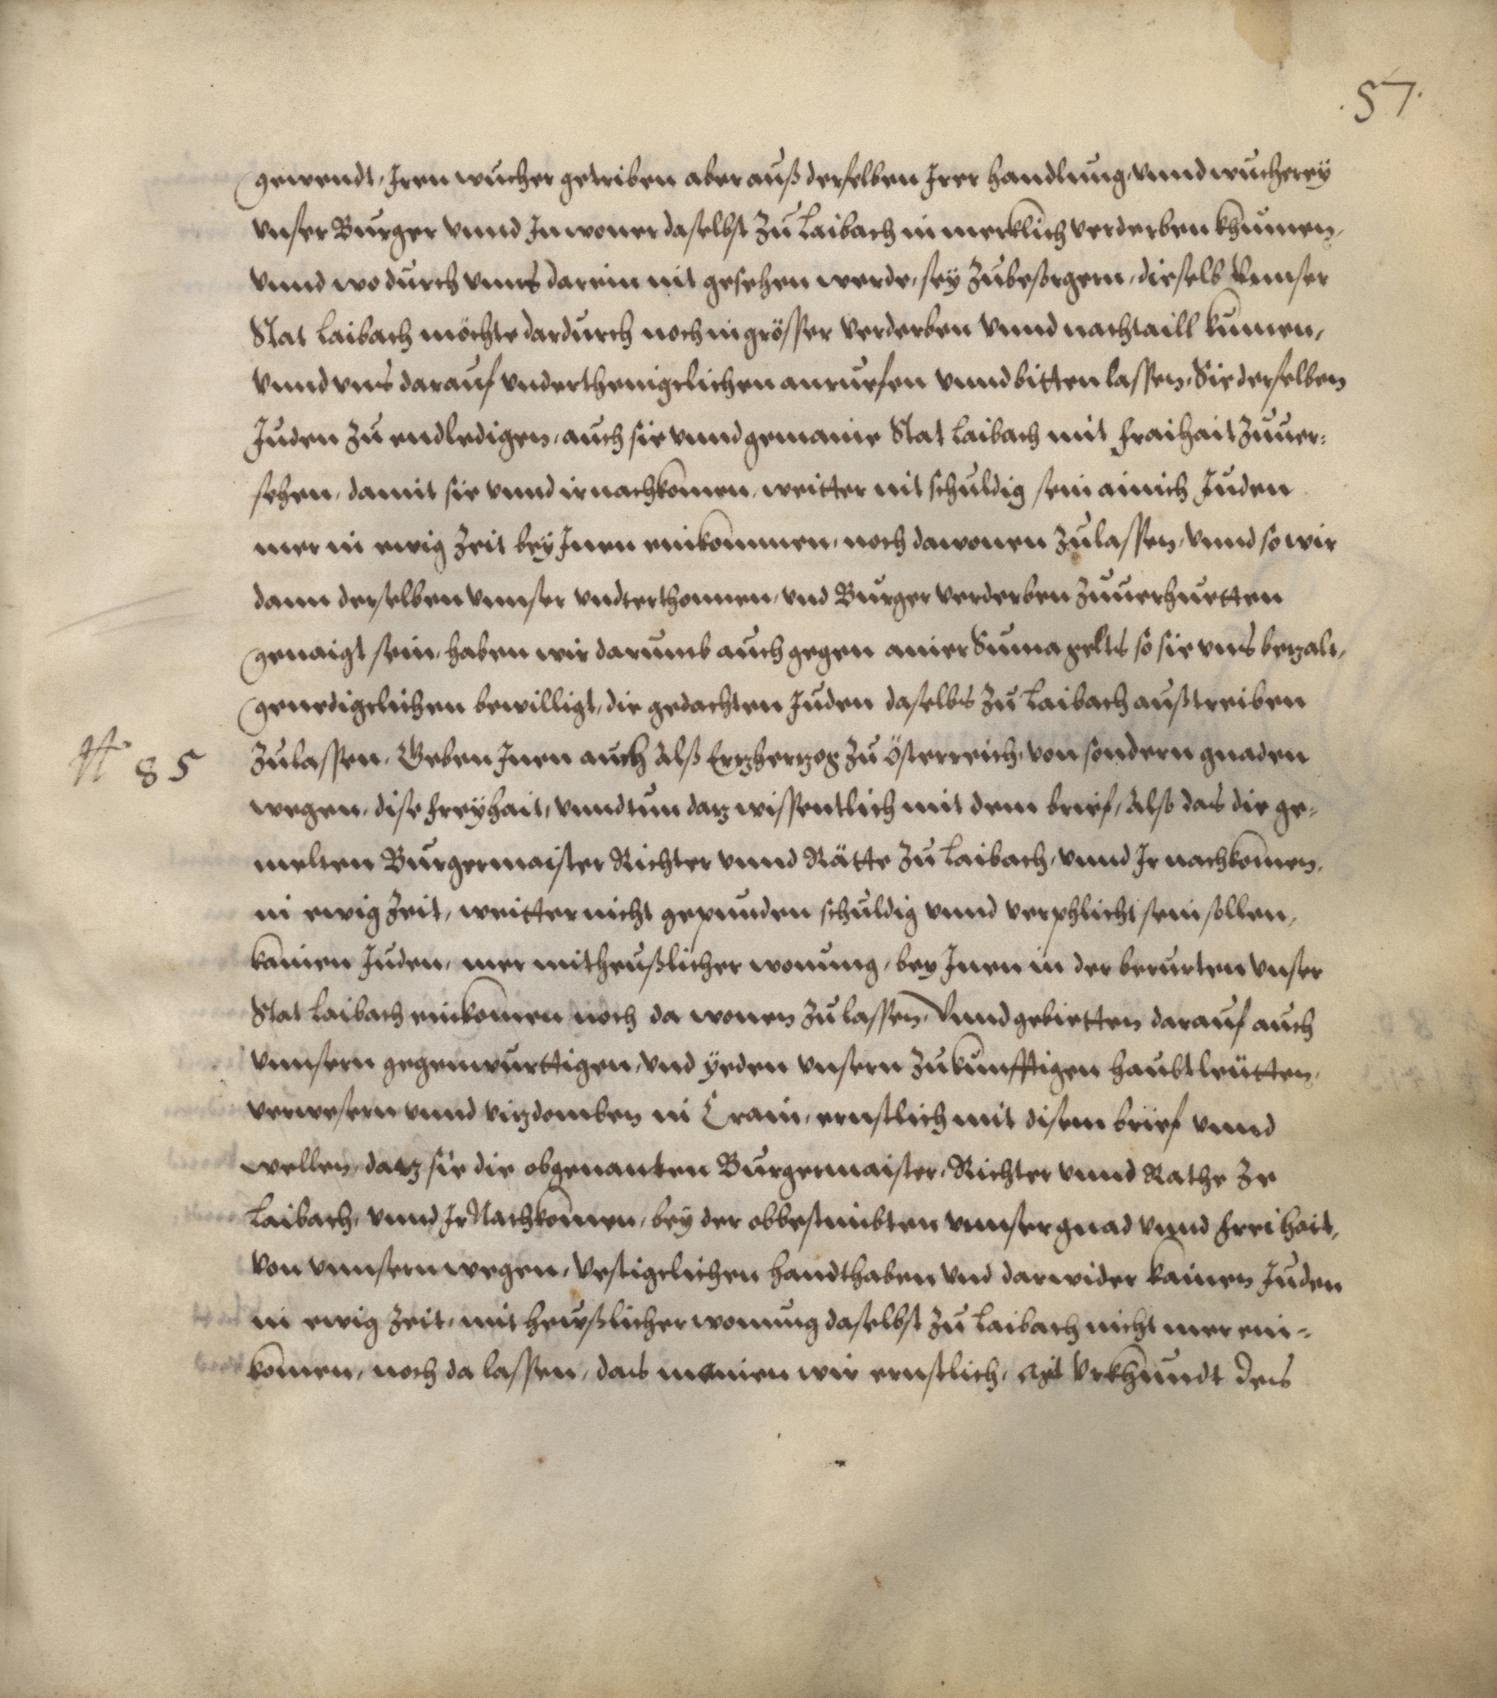 .57.
gewendt, Iren wucher getriben aber auß derselben Irer handlung, vnnd wucherey
vnser Burger vnnd Inwoner daselbst zu Laibach in merklich verderben khumen,
vnnd wo durch vnns darein nit gesehen werde, sey zubesorgern, dieselb Vnnser
Stat Laibach möchte dardurch noch in grösser verderben vnnd nachtaill kumen,
vnnd vns darauf vnderthenigclichen anruefen vnnd bitten lassen, Sie derselben
Juden zu endledigen, auch sie vnnd gemaine Stat Laibach mit fraihait zuuer=
sehen, damit sie vnnd ir nachkomen, weitter nit schuldig sein ainich Juden
mer in ewig zeit bey Inen einkommen, noch da wonen zulassen, vnnd so wir
dann derselben vnnser vndterthonnen, vnd Burger verderben zuuerhuetten
genaigt sein, haben wir darumb auch gegen ainer Suma gelts so sie vns bezalt,
genedigclichen bewilligt, die gedachten Juden daselbs zu Laibach außtreiben
85
zulassen. Geben Inen auch alß Erzherzog zu Österreich, von sondern gnaden
wegen, dise freyhait, vnnd tun daz wissentlich mit dem brief, Also das die ge=
melten Burgermaister Richter vnnd Rätte zu Laibach, vnnd Ir nachkomen,
in ewig zeit, weitter nicht gepunden schuldig vnnd verphlicht sein sollen,
kainen Juden, mer mit heußlicher wonung, bey Inen in der berurten vnser
Stat Laibach einkomen noch da wonen zulassen, Vnnd gebietten darauf auch
vnnsern gegenwurttigen, vnd yeden vnsern zukunfftigen haubtleütten,
verwesern vnnd vizdomben in Crain, ernstlich mit disem brief vnnd
wellen, daz sie die obgenanten Burgermaister, Richter vnnd Rathe ze
Laibach, vnnd Ir Nachkomen, bey der obbestimbten vnnser gnad vnnd freihait,
von vnnsern wegen, vestigclichen handthaben vnd darwider kainen Juden
in ewig zeit, mit heußlicher wonung daselbst zu Laibach nicht mer ein=
komen, noch da lassen, das mainen wir ernstlich, Mit Vrkhundt des